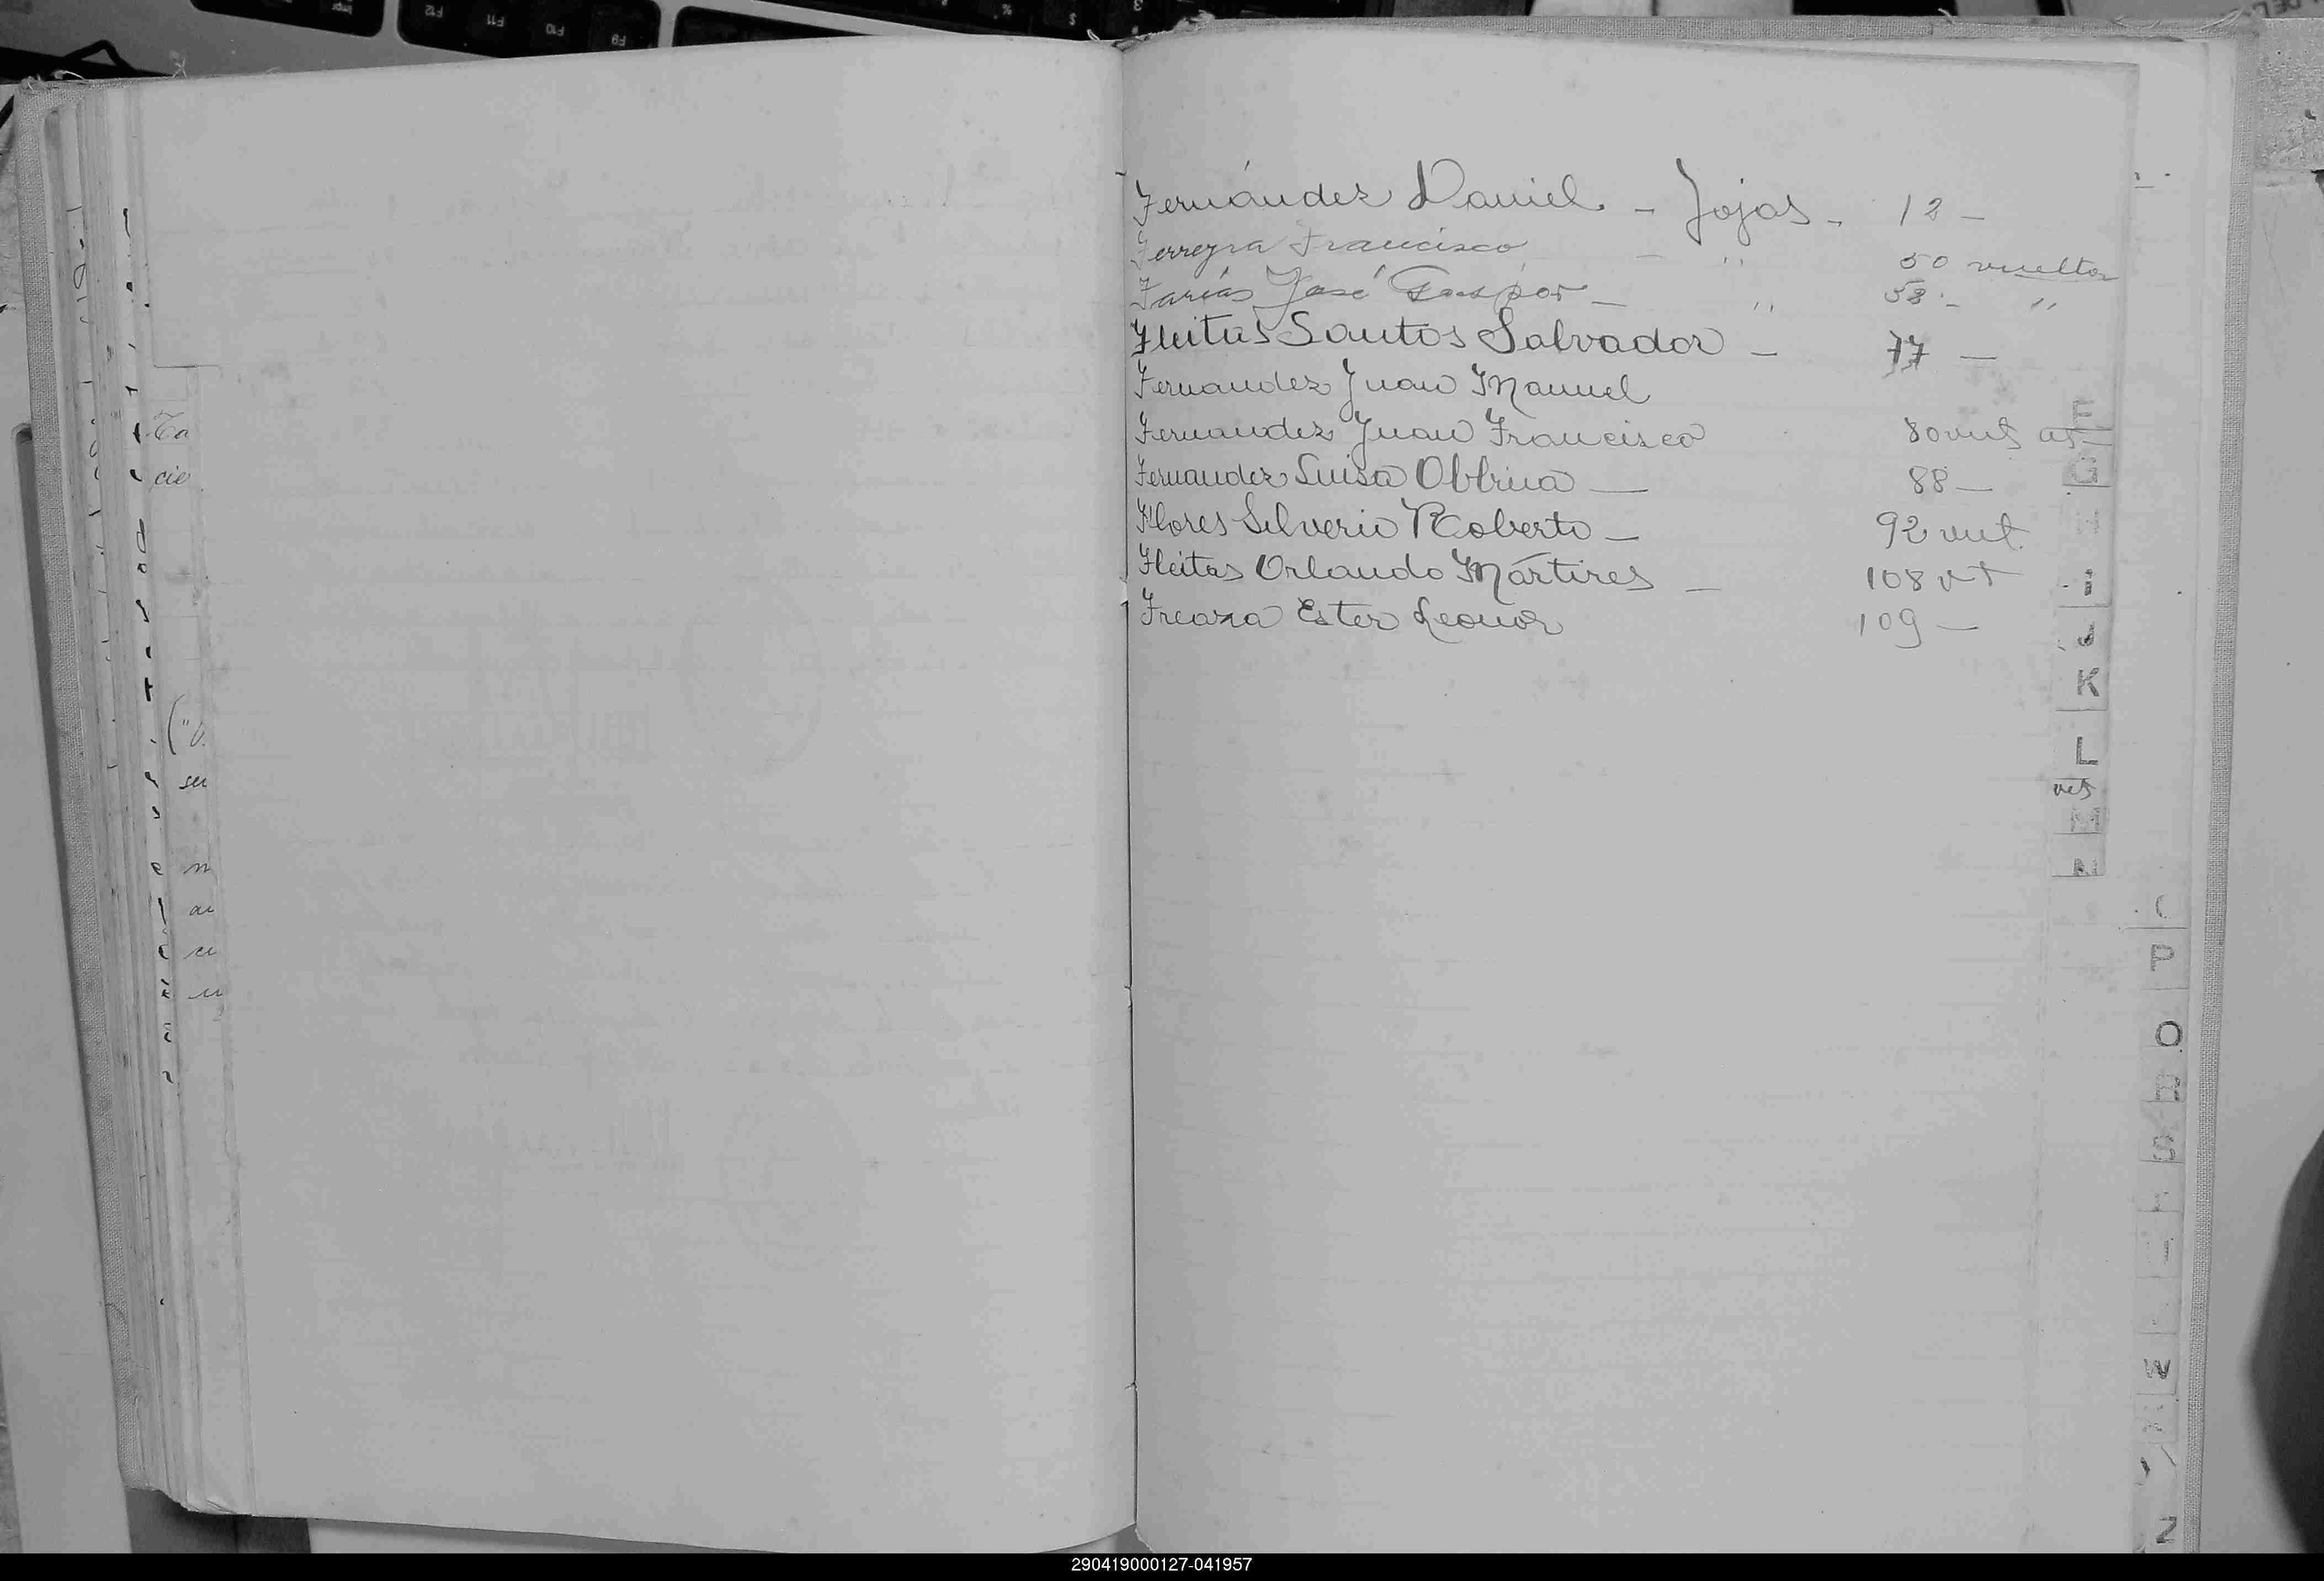 Fernández Daniel. - Fojas - 12 -
Ferreyra Francisco - " 50 vuelta
Farías José Gaspar - " 58 - "
Fleitas Santos Salvador - 77 -
Fernandez Juan Manuel
Fernandez Juan Francisco 80 vut
Fernandez Luisa - 88 -
Flores Silverio Roberto - 92 vut.
Fleitas Orlando Mártires - 108 vt
Freaza Ester Leonor 109 -
F
G
H
I
J
K
L
M
N
P
Q
R
S
W
Z
290419000127-041957